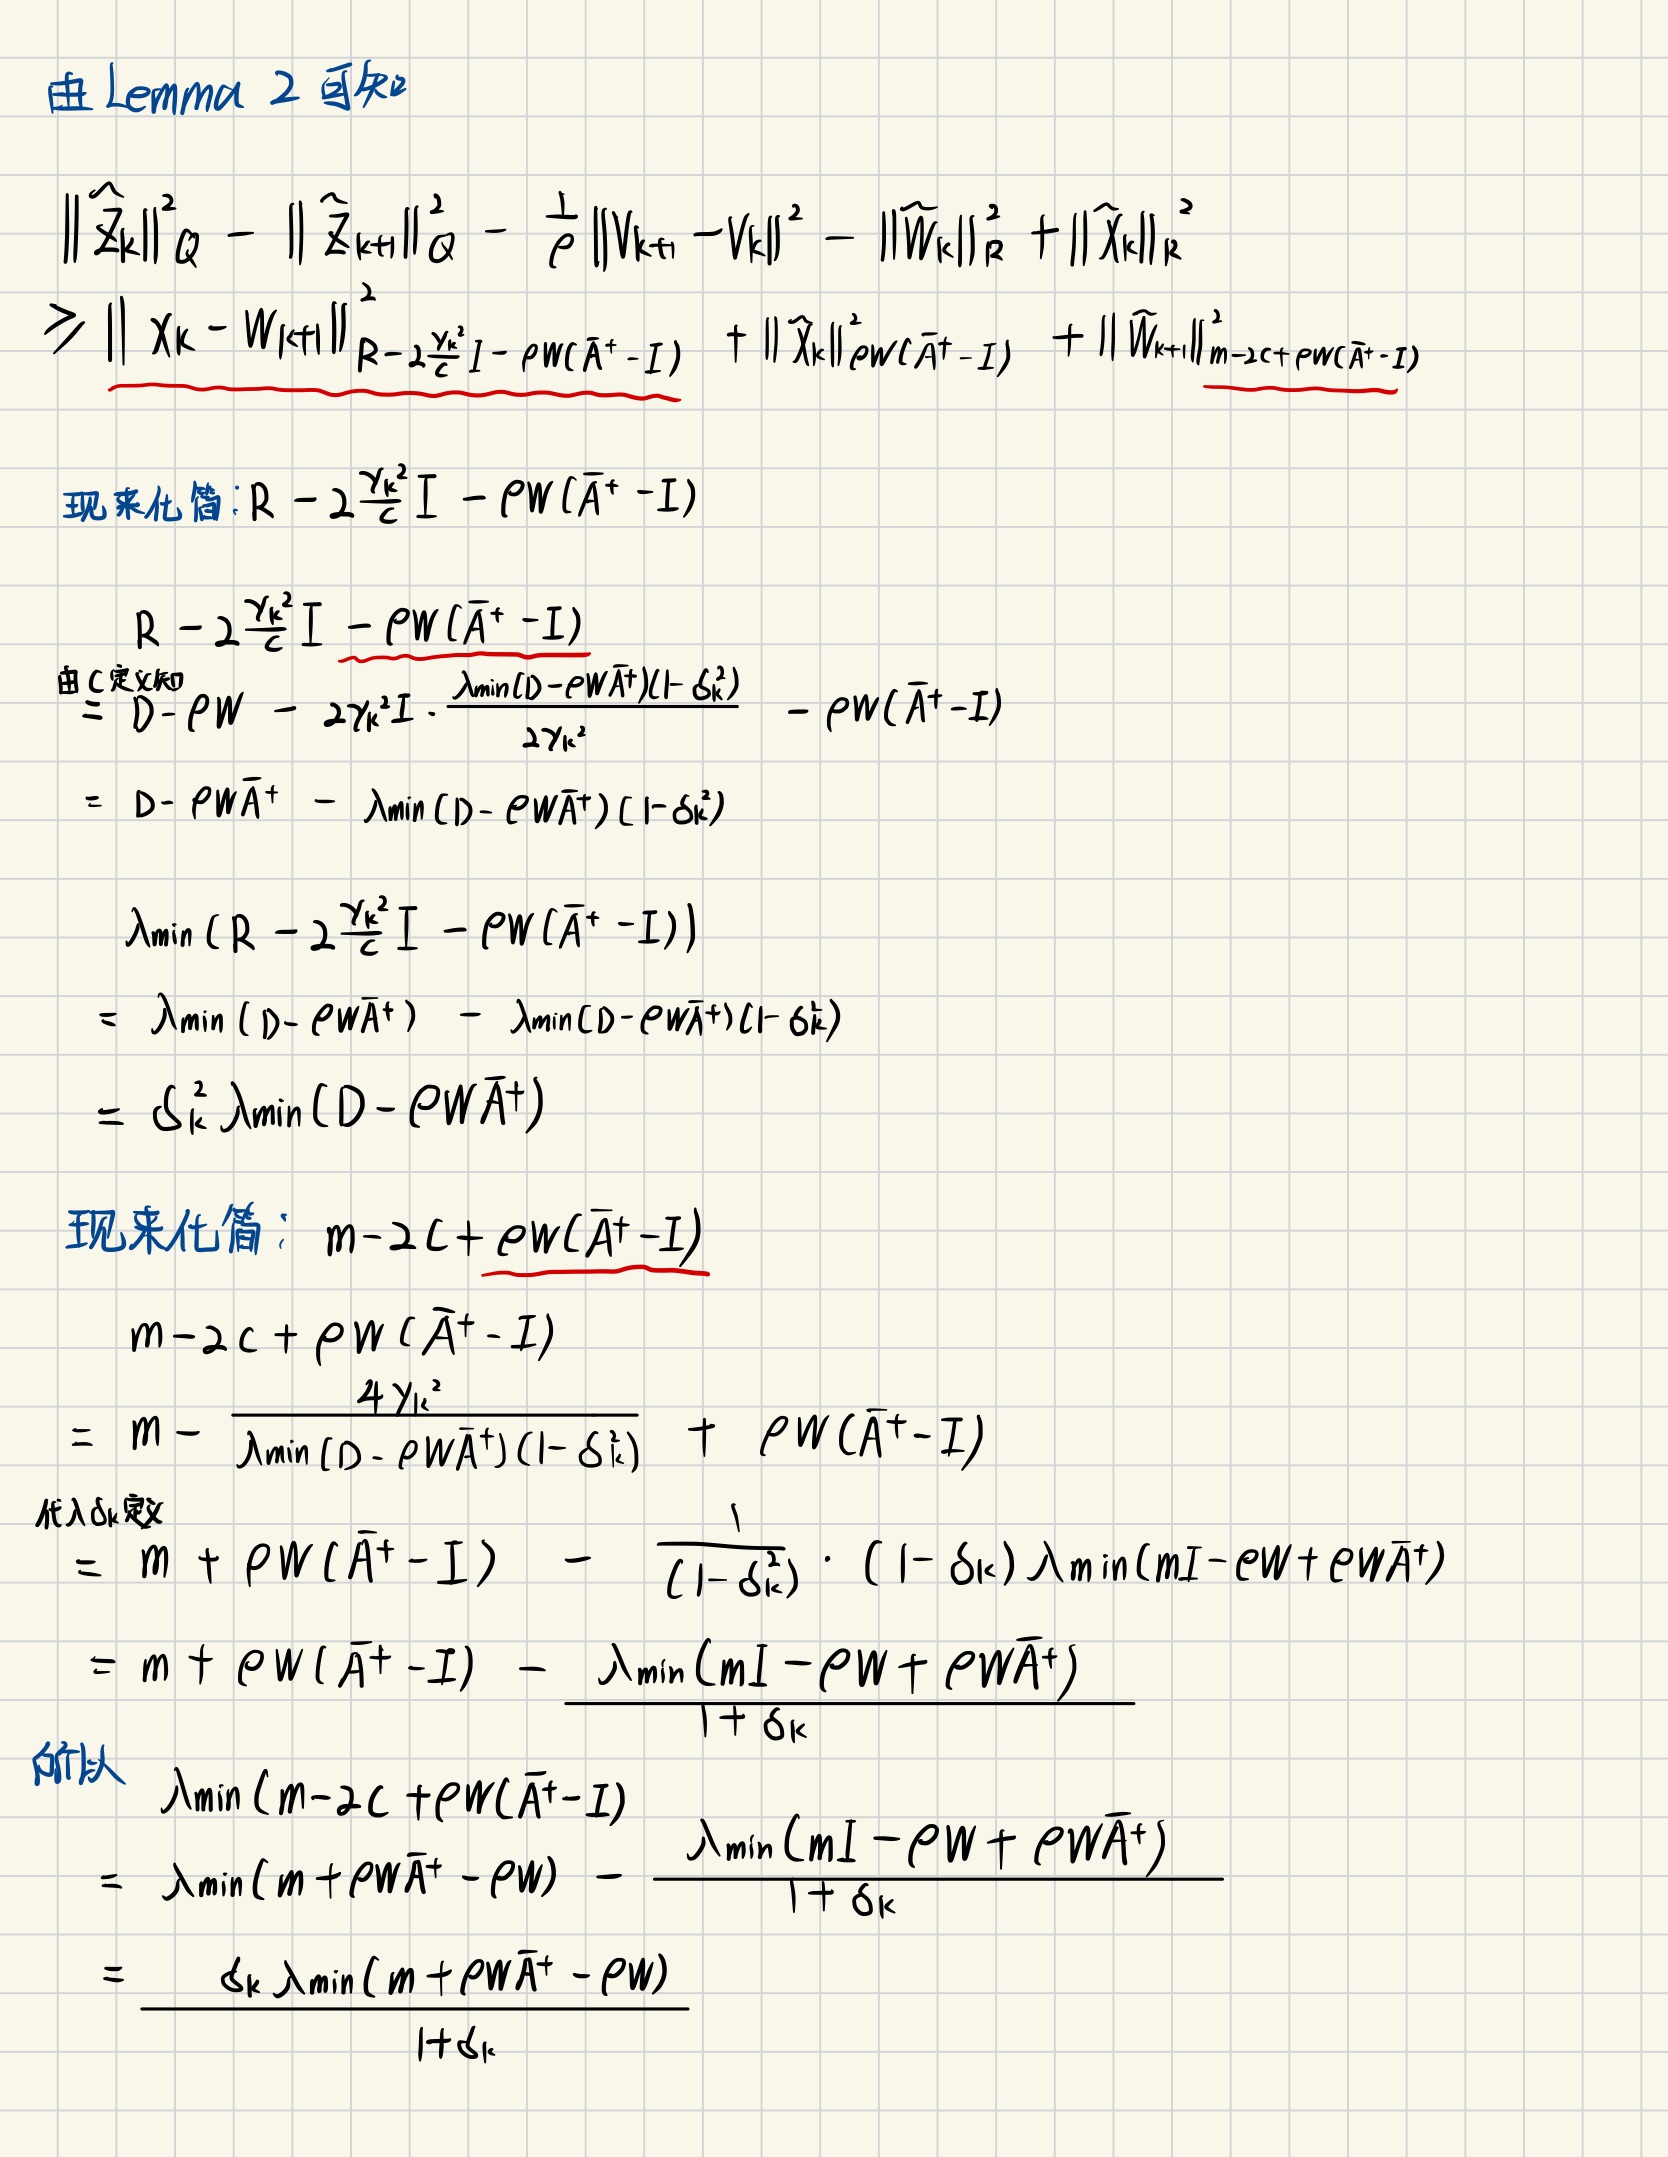 由 Lemma 2 可知
‖ẑₖ‖²_Q − ‖ẑₖ₊₁‖²_Q − 1/ρ ‖Vₖ₊₁ − Vₖ‖² − ‖Ŵₖ‖²_R + ‖X̂ₖ‖²_R
≥ ‖Xₖ − Wₖ₊₁‖²_{R − 2 γₖ²/c I − ρW(Ā⁺ − I)} + ‖X̂ₖ‖²_{ρW(Ā⁺ − I)} + ‖Ŵₖ₊₁‖²_{m − 2c + ρW(Ā⁺ − I)}
现来化简: R − 2 γₖ²/c I − ρW(Ā⁺ − I)
R − 2 γₖ²/c I − ρW(Ā⁺ − I)
由 C 定义知
= D − ρW − 2γₖ² I · λmin(D − ρWĀ⁺)(1 − δₖ²) / 2γₖ² − ρW(Ā⁺ − I)
= D − ρWĀ⁺ − λmin(D − ρWĀ⁺)(1 − δₖ²)
λmin(R − 2 γₖ²/c I − ρW(Ā⁺ − I))
= λmin(D − ρWĀ⁺) − λmin(D − ρWĀ⁺)(1 − δₖ²)
= δₖ² λmin(D − ρWĀ⁺)
现来化简: m − 2C + ρW(Ā⁺ − I)
m − 2c + ρW(Ā⁺ − I)
= m − 4γₖ² / λmin(D − ρWĀ⁺)(1 − δₖ²) + ρW(Ā⁺ − I)
代入δₖ定义
= m + ρW(Ā⁺ − I) − 1/(1 − δₖ²) · (1 − δₖ) λmin(mI − ρW + ρWĀ⁺)
= m + ρW(Ā⁺ − I) − λmin(mI − ρW + ρWĀ⁺) / 1 + δₖ
所以
λmin(m − 2c + ρW(Ā⁺ − I)
= λmin(m + ρWĀ⁺ − ρW) − λmin(mI − ρW + ρWĀ⁺) / 1 + δₖ
= δₖ λmin(m + ρWĀ⁺ − ρW) / 1 + δₖ